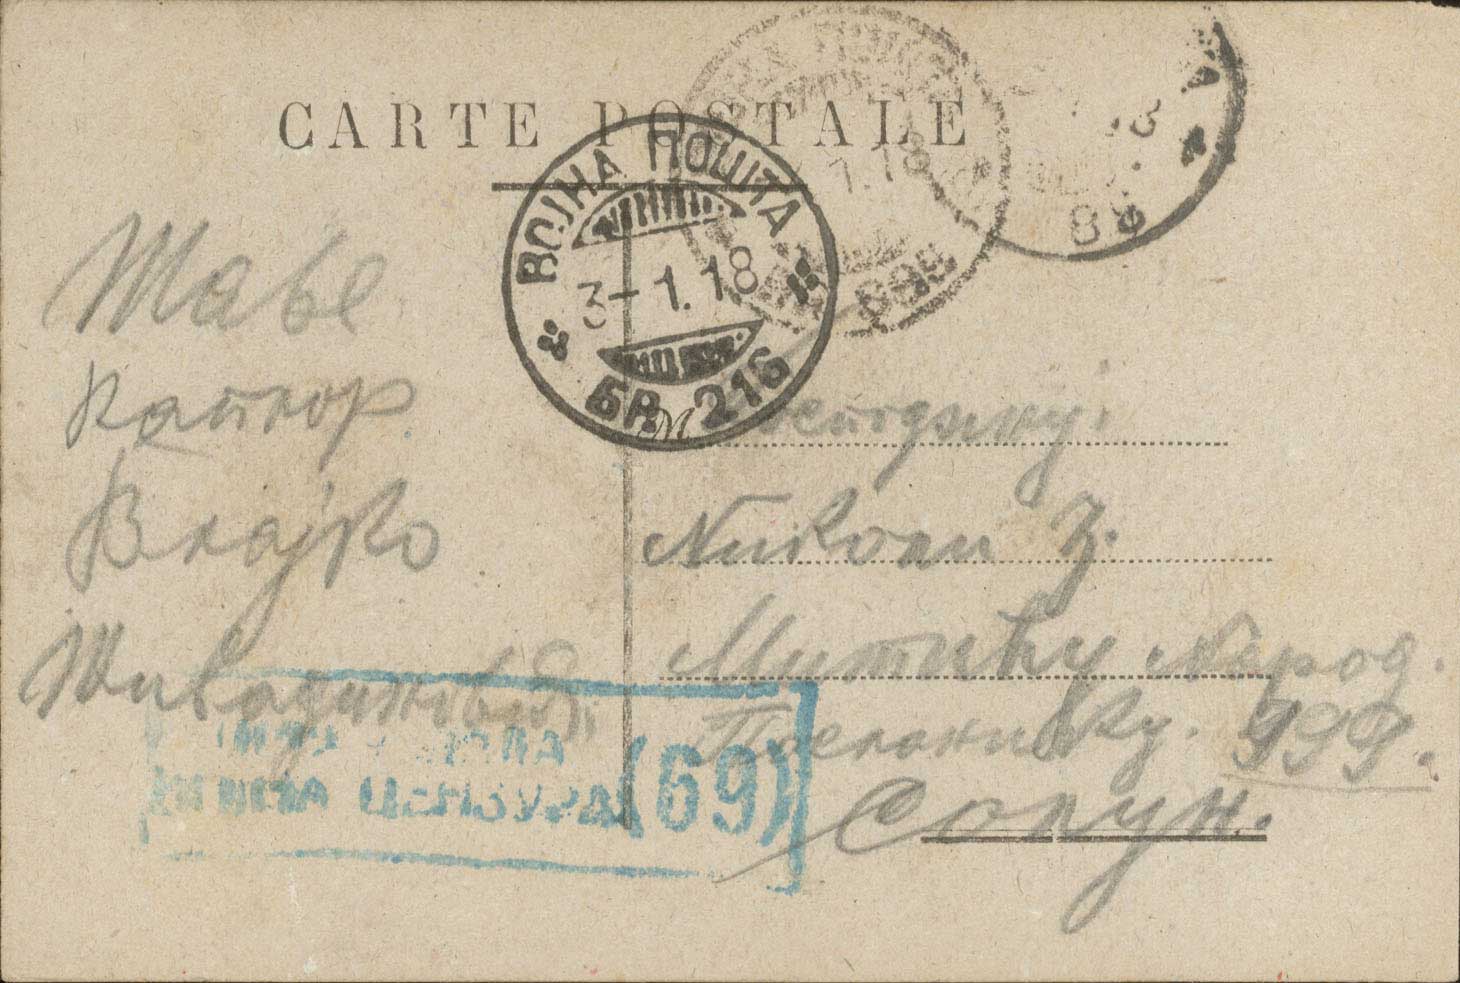 CARTE POSTALE
ВОЈНА ПОШТА
3-1.18
БР. 216
1.18
999
88
Шаље
Каплар
Влајко
Живадиновић
Господину.
Николи З.
Митићу Народ.
Посланику. 999.
Солун.
ЦЕНЗУРА (69)